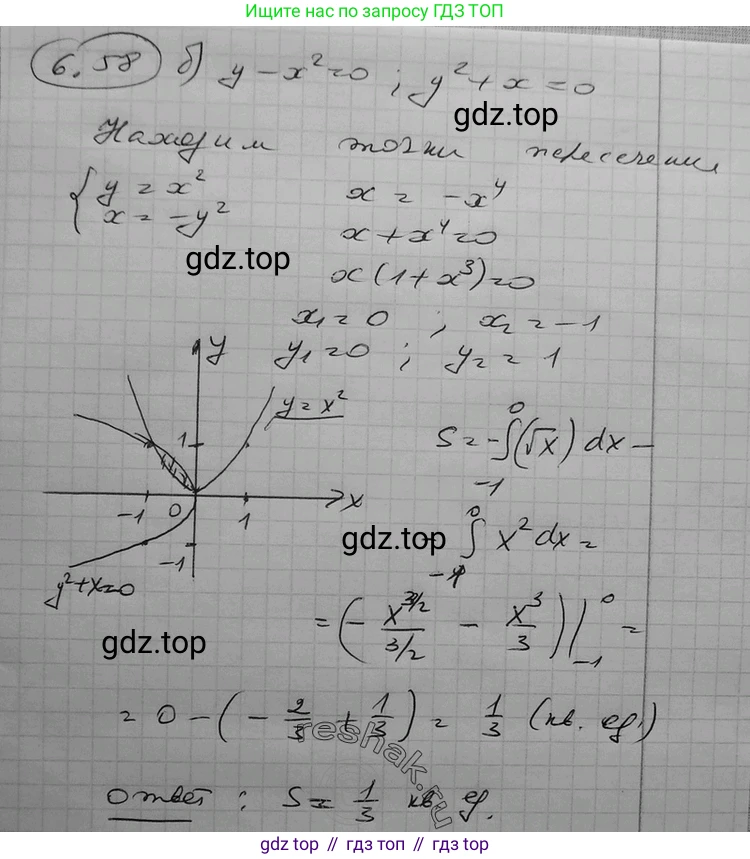 Ищите нас по запросу ГДЗ ТОП
6.58 б) y - x² = 0 ; y² + x = 0
gdz.top
Находим точки пересечения
{ y = x²
x = -y²
x = -x⁴
gdz.top
x + x⁴ = 0
x(1 + x³) = 0
x₁ = 0 ; x₂ = -1
y₁ = 0 ; y₂ = 1
y
y = x²
1
-1 0 1 x
-1
y² + x = 0
S = -∫₋₁⁰(√x) dx -
gdz.top
∫₋₁⁰ x² dx =
gdz.top
= (- x^(3/2)/(3/2) - x³/3) |₋₁⁰ =
= 0 - (- 2/3 + 1/3) = 1/3 (кв. ед.)
reshak.ru
Ответ : S = 1/3 кв ед.
gdz.top // gdz.top // gdz.top